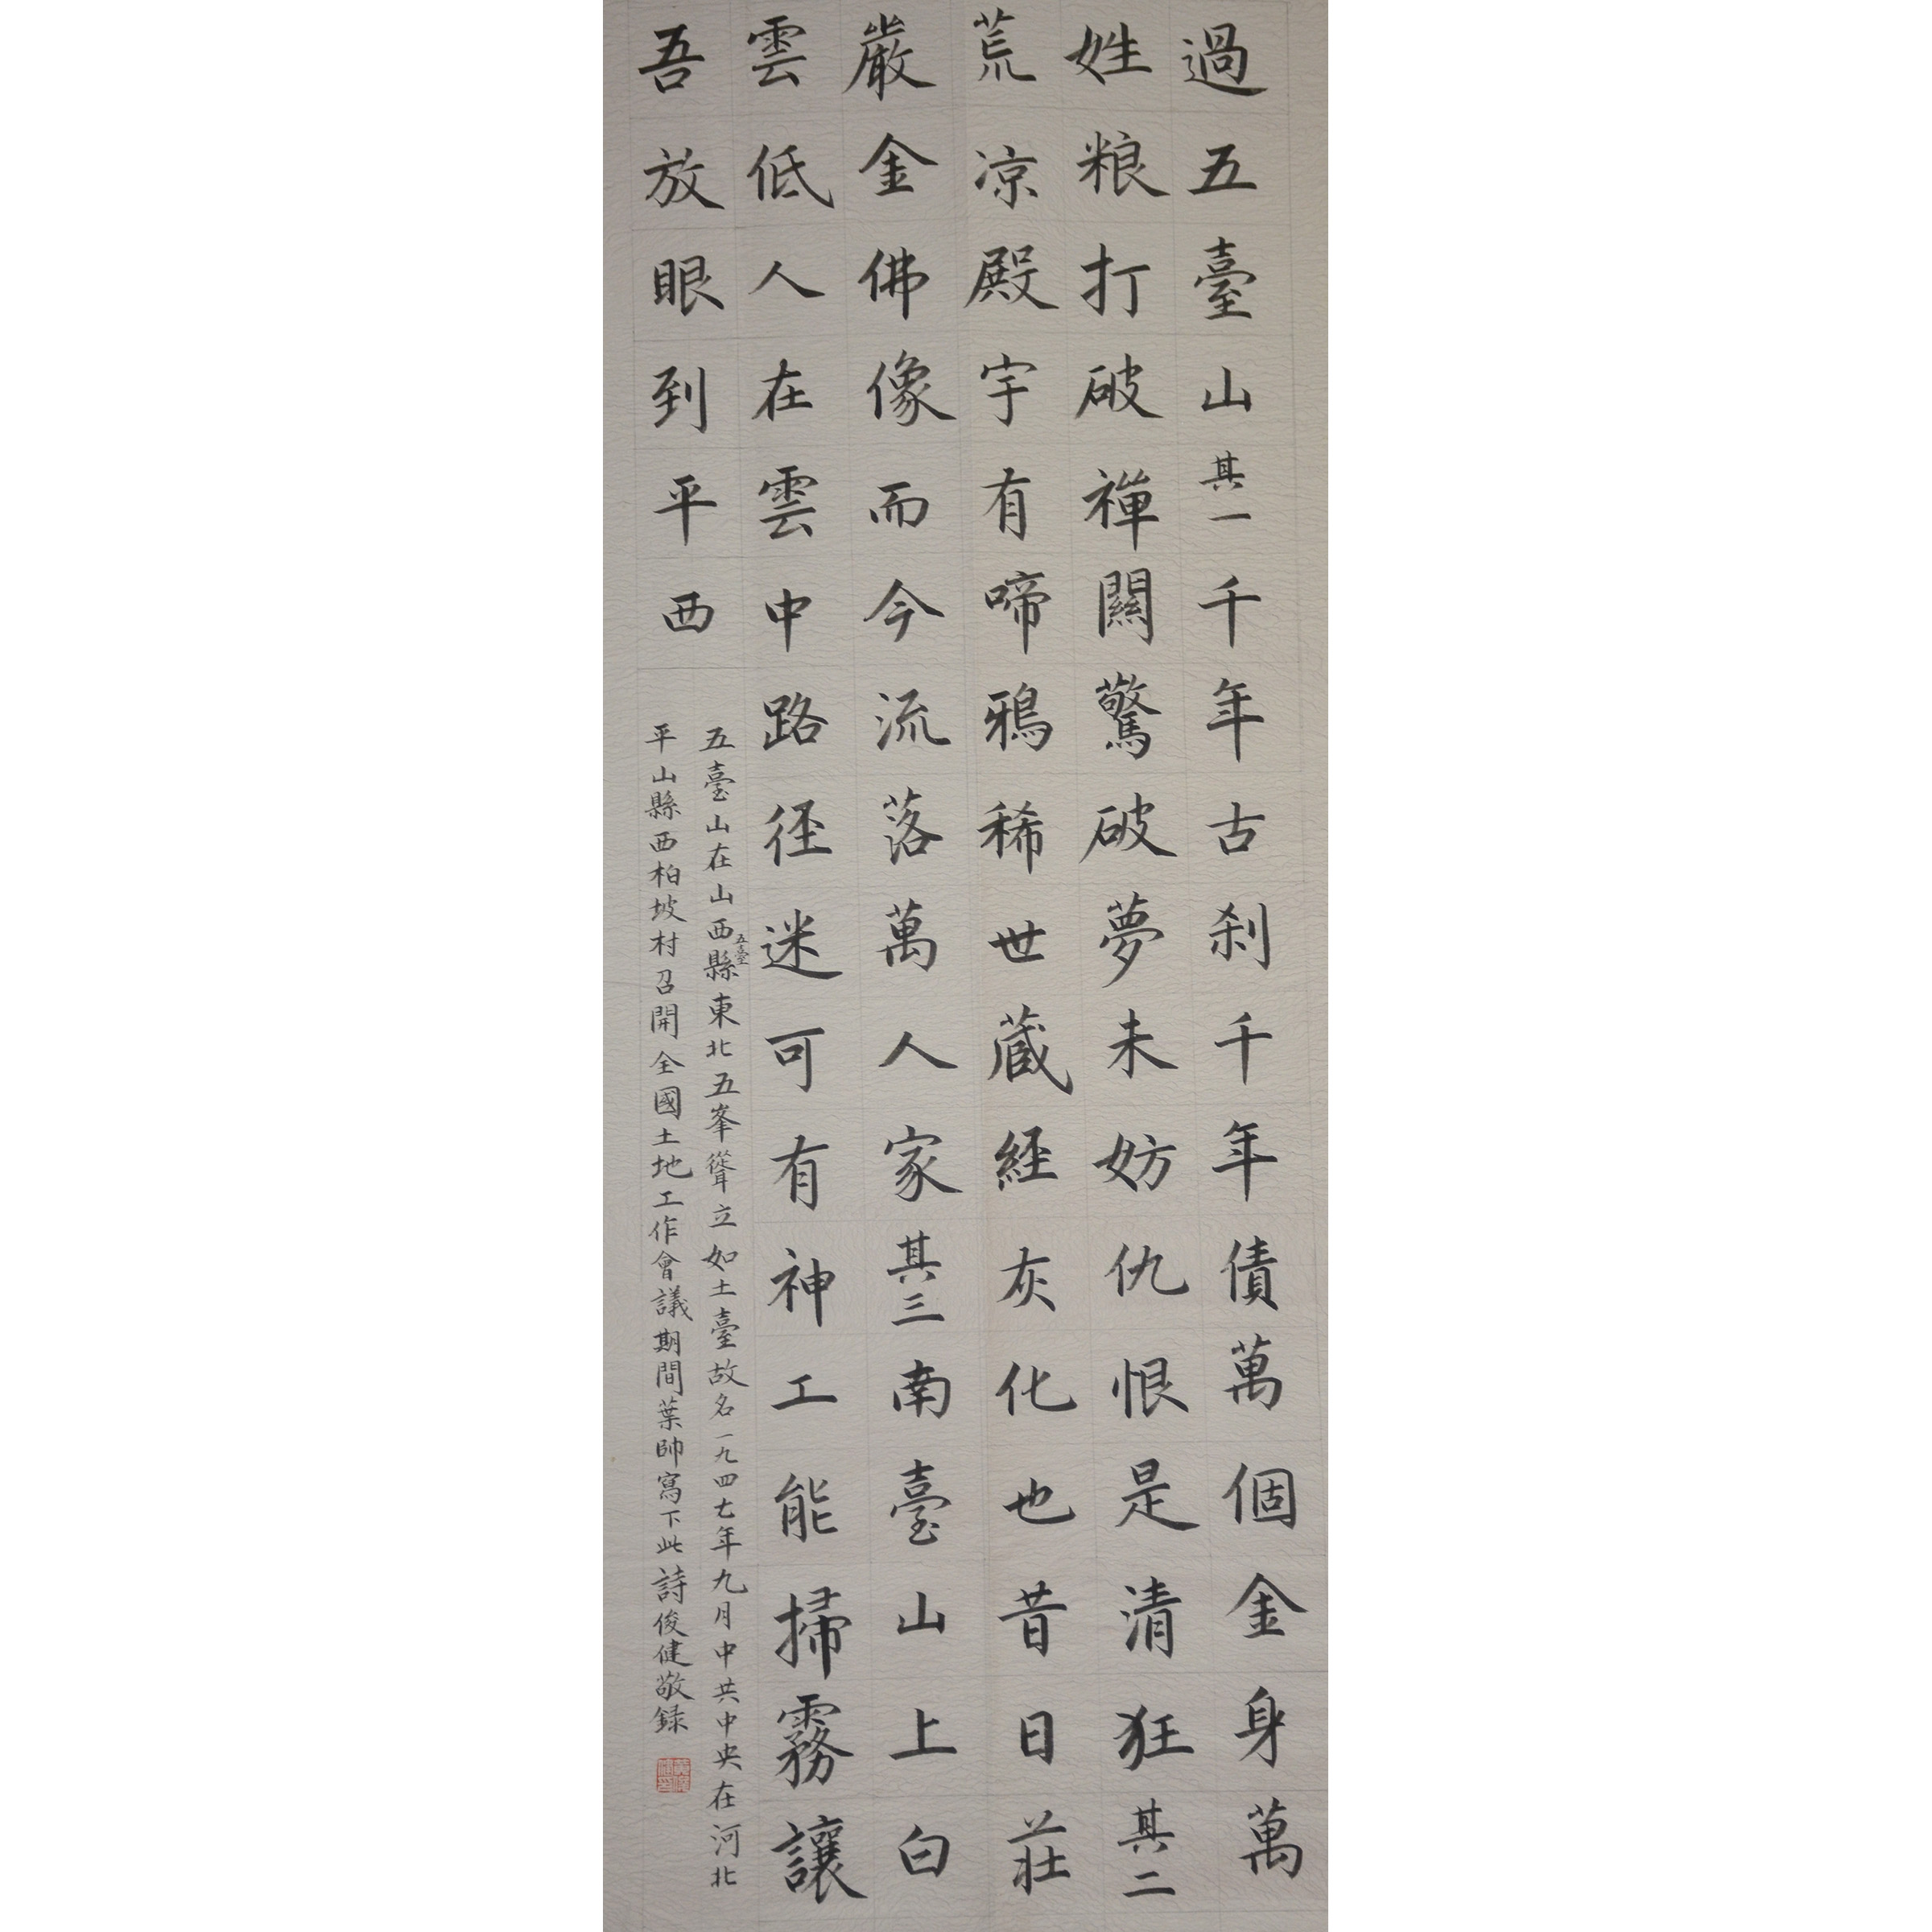 過五臺山其一千年古刹千年債萬個金身萬
姓粮打破禪關驚破夢未妨仇恨是清狂其二
荒凉殿宇有啼鴉稀世蔵経灰化也昔日莊
嚴金佛像而今流落萬人家其三南臺山上白
雲低人在雲中路径迷可有神工能掃霧讓
吾放眼到平西
五臺山在山西五臺縣東北五峯聳立如土臺故名一九四七年九月中共中央在河北
平山縣西柏坡村召開全國土地工作會議期間葉帥寫下此詩俊健敬録